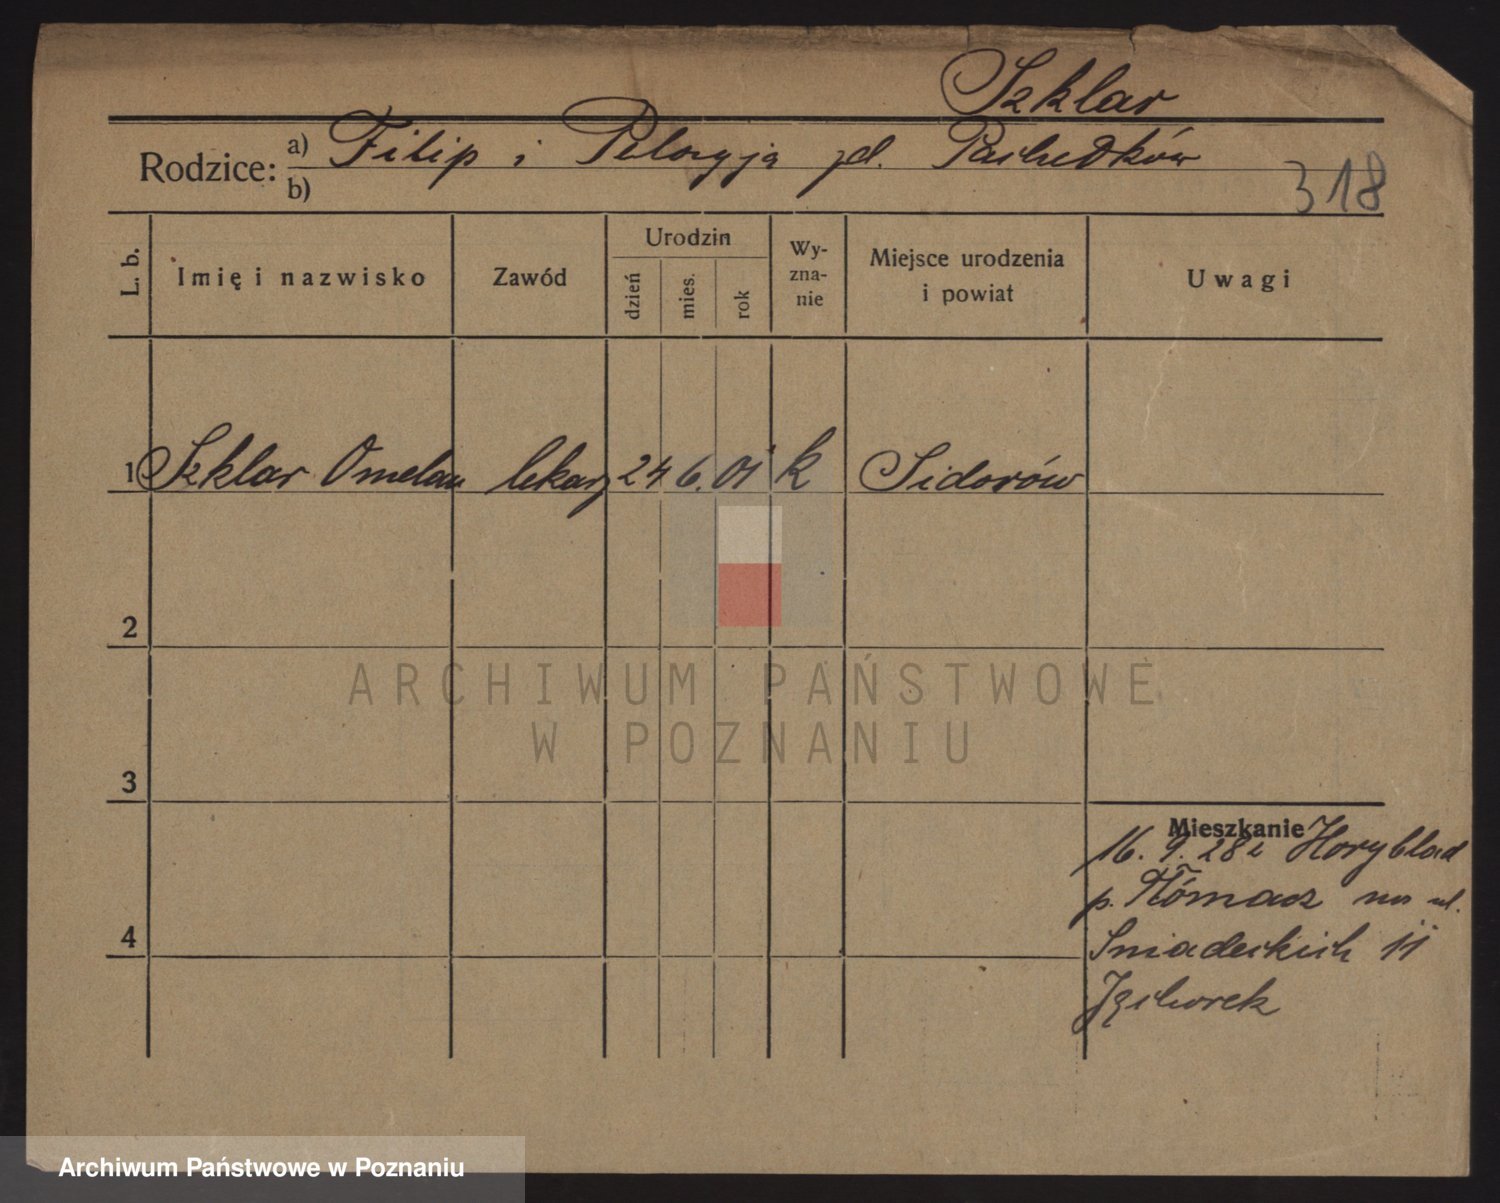 Szklar
Rodzice: a) Filip i Pelagyja zd. Pachudków
b)
318
L. b.
Imię i nazwisko
Zawód
Urodzin
dzień
mies.
rok
Wy-
zna-
nie
Miejsce urodzenia
i powiat
Uwagi
1 Szklar Omelan lekarz 24 6. 01 k Sidorów
2
3
4
Mieszkanie
16. 9. 28 z
p. na ul.
Sniadeckich 11
ARCHIWUM PAŃSTWOWE
W POZNANIU
Archiwum Państwowe w Poznaniu